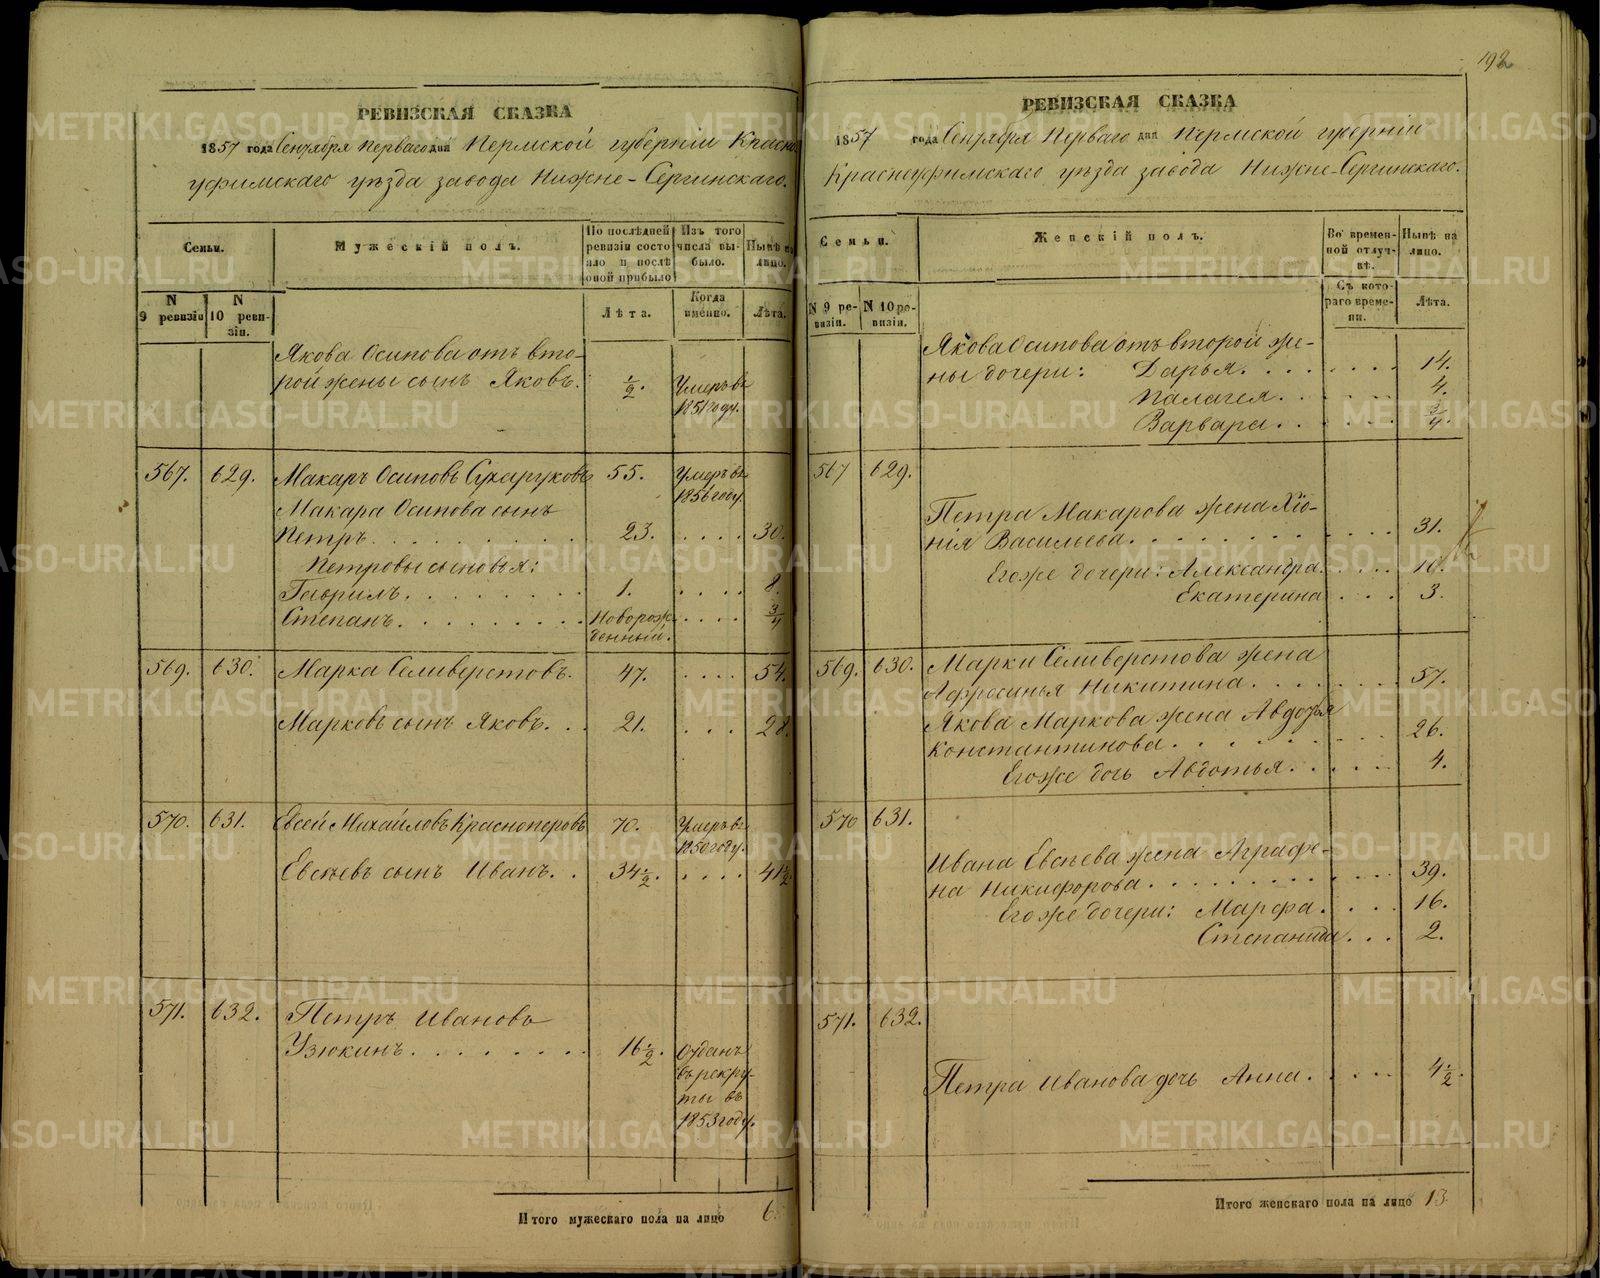 192
РЕВИЗСКАЯ СКАЗКА
1857 года Сентября перваго дня Пермской губерніи Красно-
уфимскаго уѣзда завода Нижне-Сергинскаго.
Семьи.
Мужескій полъ.
По послѣдней ревизіи состояло и послѣ оной прибыло
Изъ того числа выбыло.
Нынѣ на лицо.
N 9 ревизіи
N 10 ревизіи.
Лѣта.
Когда именно.
Лѣта.
Якова Осипова отъ вто-
рой жены сынъ Яковъ. ½. Умеръ въ
1851 году.
567. 629. Макаръ Осиповъ Сухаруковъ 55. Умеръ въ
1856 году.
Макара Осипова сынъ
Петръ. 23. 30.
Петровы сыновья:
Гаврилъ. 1. 8.
Степанъ. Новорож- ¾
денный.
569. 630. Марка Селиверстовъ. 47. 54.
Марковъ сынъ Яковъ. 21. 28.
570. 631. Евсей Михайловъ Красноперовъ 70. Умеръ въ
1850 году.
Евсѣевъ сынъ Иванъ. 34½. 41½
571. 632. Петръ Ивановъ
Узюкинъ. 16½. Отданъ
въ рекру-
ты въ
1853 году.
Итого мужескаго пола на лицо 6.
РЕВИЗСКАЯ СКАЗКА
1857 года Сентября Перваго дня Пермской губерніи
Красноуфимскаго уѣзда завода Нижне-Сергинскаго.
Семьи.
Женскій полъ.
Во временной отлучкѣ.
Нынѣ на лицо.
N 9 ревизіи.
N 10 ревизіи.
Съ котораго времени.
Лѣта.
Якова Осипова отъ второй же-
ны дочери: Дарья. 14.
Палагея. 4.
Варвара. ¾.
567 629.
Петра Макарова жена Хіо-
нія Васильева. 31.
Егоже дочери: Александра. 10.
Екатерина 3.
569. 630. Марки Селиверстова жена
Афросинья Никитина. 57.
Якова Маркова жена Авдотья
Константинова. 26.
Егоже дочь Авдотья. 4.
570 631.
Ивана Евсѣева жена Аграфе-
на Никифорова. 39.
Егоже дочери: Марфа. 16.
Степанида. 2.
571. 632.
Петра Иванова дочь Анна. 4½.
Итого женскаго пола на лицо 13.
METRIKI.GASO-URAL.RU